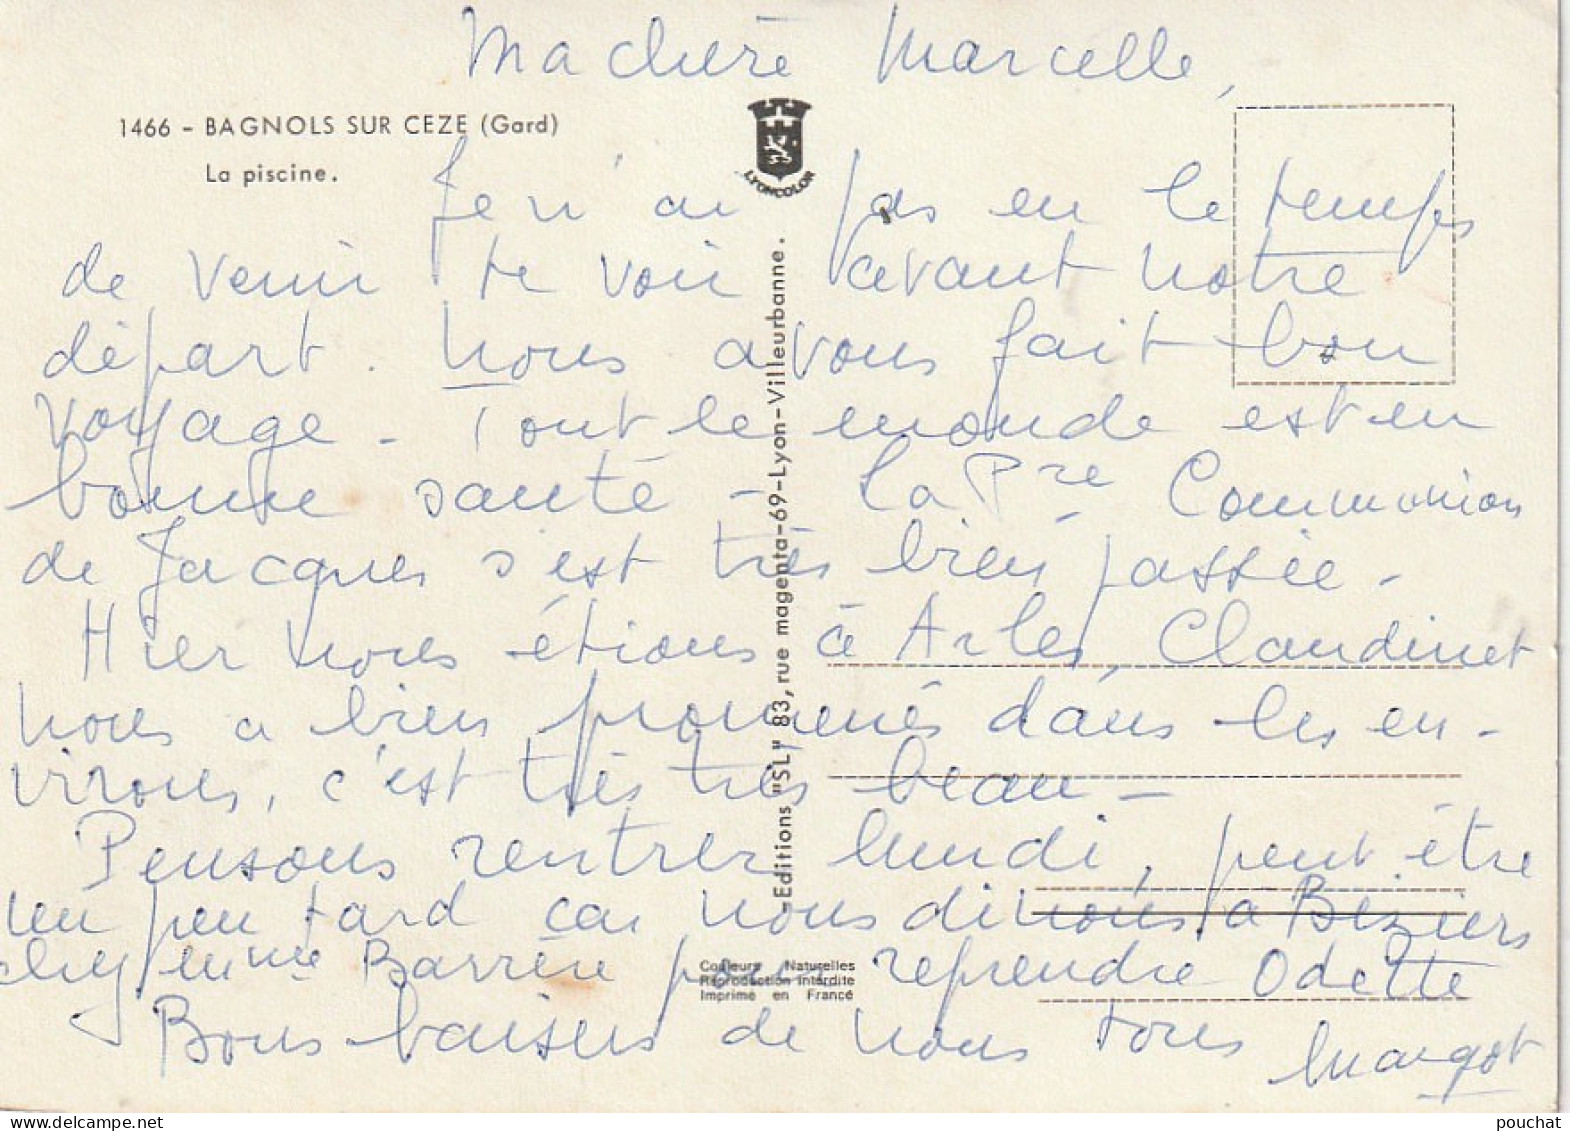 Ma chère Marcelle,
1466 - BAGNOLS SUR CEZE (Gard)
La piscine.
LYONCOLOR
Je n'ai pas eu le temps
de venir te voir avant notre
départ. Nous avons fait bon
voyage - Tout le monde est en
bonne santé - La Pre Communion
de Jacques s'est très bien passée -
Hier nous étions à Arles, Claudinet
nous a bien promenés dans les en-
virons, c'est très très beau -
Pensons rentrer lundi, peut être
un peu tard car nous dinons à Béziers
chez Mme Barrère pour reprendre Odette
Bons baisers de nous tous
Margot
-Editions "SL" 83, rue magenta-69-Lyon-Villeurbanne.
Couleurs Naturelles
Reproduction interdite
Imprimé en France
pouchat